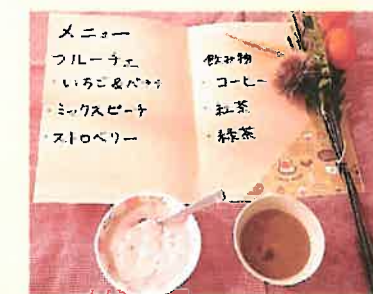 メニュー
フルーチェ
・いちご&バナナ
・ミックスピーチ
・ストロベリー
飲み物
・コーヒー
・紅茶
・緑茶